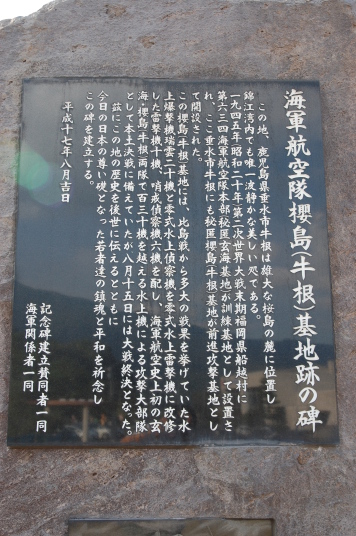 海軍航空隊櫻島(牛根)基地跡の碑
この地、鹿児島県垂水市牛根は雄大な桜島の麓に位置し
錦江湾内でも唯一波静かな美しい処である。
一九四五年(昭和二十年)第二次世界大戦末期福岡県船越村に
第六三四海軍航空隊本部秘匿玄海基地が訓練基地として設置さ
れ、ここ垂水市牛根にも秘匿櫻島(牛根)基地が前進攻撃基地とし
て開設された。
この櫻島(牛根)基地には、比島戦から多大の戦果を挙げていた水
上爆撃機瑞雲二十機と零式水上偵察機を零式水上雷撃機に改修
した雷撃機六機、哨戒偵察機六機を配し、海軍航空史上初の玄
海・櫻島(牛根)両隊で百三十機を越える水上機による攻撃大部隊
として本土決戦に備えていたが八月十五日には大戦終決となった。
茲にこの地の歴史を後世に伝えるとともに
今日の日本の尊い礎となった若者達の鎮魂と平和を祈念し
この碑を建立する。
平成十七年八月吉日
記念碑建立賛同者一同
海軍関係者一同